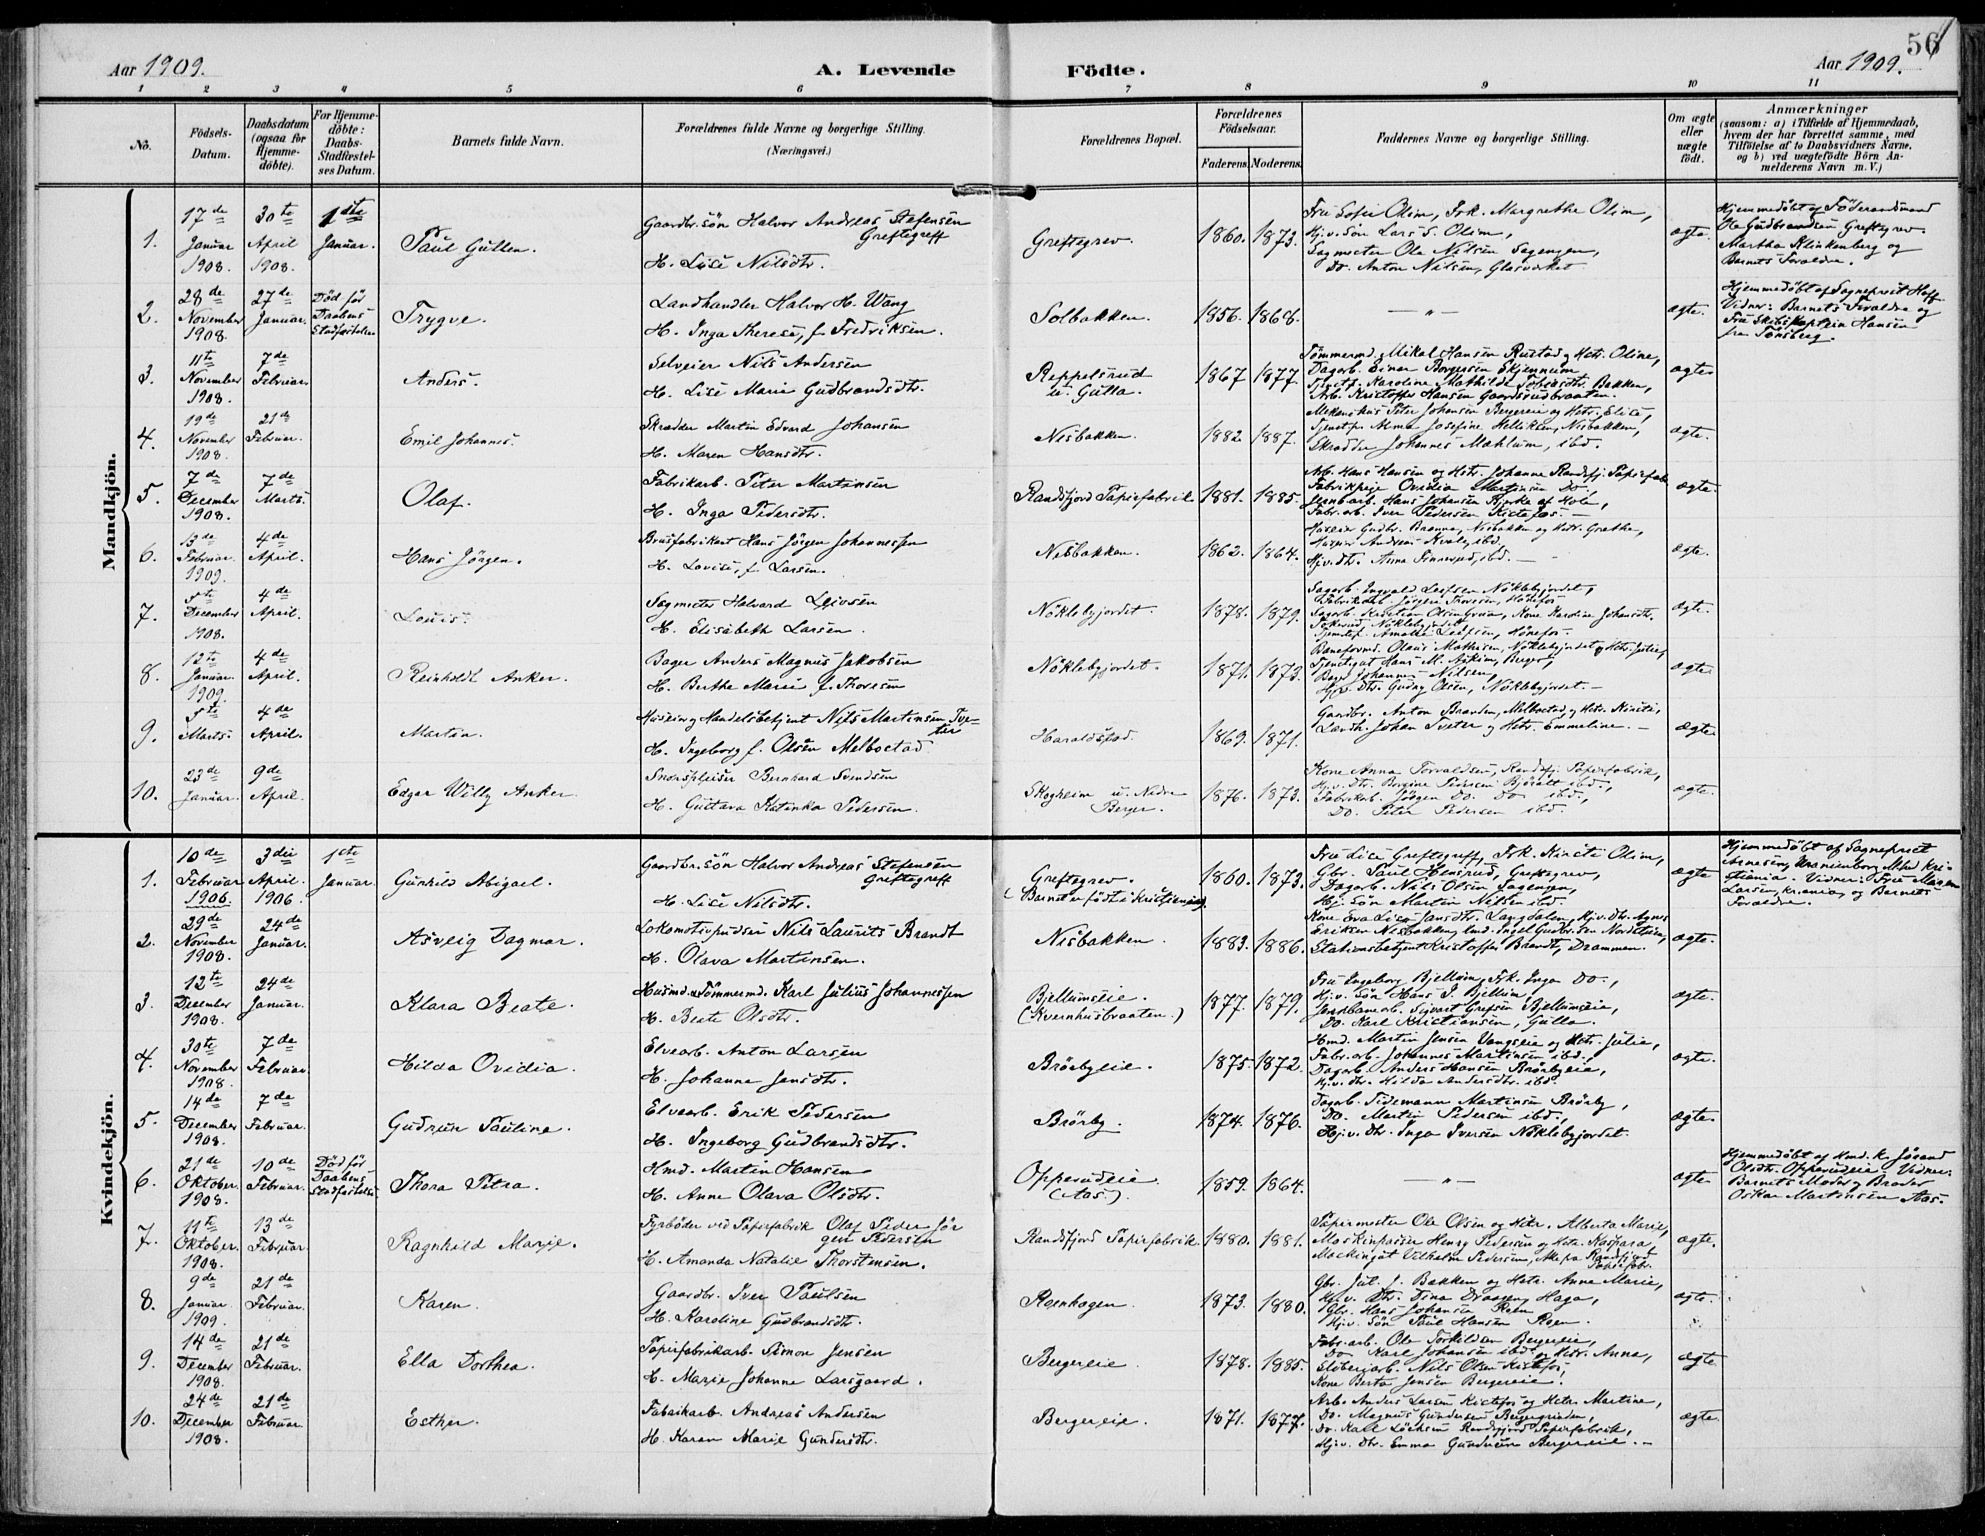 Aar 1909.
A. Levende Födte.
56
Aar 1909.
1 2 3 4 5 6 7 8 9 10 11
No.
Födsels-Datum.
Daabsdatum (ogsaa for Hjemme-döbte).
For Hjemme-döbte: Daabs-Stadfæstel-ses Datum.
Barnets fulde Navn.
Forældrenes fulde Navne og borgerlige Stilling.
(Næringsvei.)
Forældrenes Bopæl.
Forældrenes Födselsaar.
Faderens. Moderens.
Faddernes Navne og borgerlige Stilling.
Om ægte eller uægte födt.
Anmærkninger
(saasom: a) i Tilfælde af Hjemmedaab,
hvem der har forrettet samme, med
Tilföielse af to Daabsvidners Navne,
og b) ved uægtefödte Börn An-
melderens Navn m. V.)
Mandkjön.
1. 17de Januar 1908. 30te April 1908. 1ste Januar. Paul Gullen.
Gaardbr.sön Halvor Andreas Stefensen Greftegreff
H. Lise Nilsdtr.
Greftegrev. 1860. 1873.
Fru Sofie Olim, Frk. Margrethe Olim,
Hj.v. sön Lars S. Olim,
Sagmester Ole Nilsen Sagengen,
Do. Anton Nilsen, Glasværket
ægte
Hjemmedöbt af Föderaadsmand
Ole Gudbrandsen Greftegrev.
Martha Klinkenberg og
Barnets Forældre.
2. 28de November 1908. 27de Januar. Död för Daabens Stadfæstelse Trygve.
Landhandler Halvor H. Wang
H. Inga Therese, f. Fredriksen.
Solbakken. 1856. 1868. —"— ægte.
Hjemmedöbt af Sogneprest Hoff
Vidner: Barnets Forældre og
Fru Skibskaptein Hansen
fra Tönsberg.
3. 11te November 1908. 7de Februar. Anders.
Selveier Nils Andersen
H. Lise Marie Gudbrandsdtr.
Reppelsrud u. Gulla. 1867 1877
Tömmermd. Mikal Hansen Rustad og Hstr. Oline,
Dagarb. Einar Borgersen Skjennum
Tjenestp. Karoline Mathilde Bakken,
Arb. Kristoffer Hansen Gaardsrudbraaten.
ægte
4. 19de November 1908. 21de Februar. Emil Johannes.
Skræder Martin Edvard Johansen
H. Maren Hansdtr.
Nisbakken. 1882 1887.
Mekanikus Peter Johansen Bergereie og Hstr. Elise,
Tjenestp. Alma Josefine Nisbakken,
Skrædder Johannes Mæhlum, ibd.
ægte.
5. 7de December 1908. 7de Marts. Olaf.
Fabrikarb. Peter Martinsen
H. Inga Pedersdtr.
Randsfjord Papirfabrik 1881. 1885.
Arb. Hans Hansen og Hstr. Johanne Randsfj. Papirfab.
Fabrikpige Ovidia Martinsen Do
Jernb.arb. Hans Johansen Bjerke af Hole,
Fabr.arb. Iver Pedersen Kistefos. —
ægte.
6. 13de Februar 1909. 4de April. Hans Jörgen.
Brusfabrikant Hans Jörgen Johannessen
H. Lovise, f. Larsen.
Nisbakken. 1862. 1864.
Huseier Gudbr. Brænna, Nisbakken og Hstr. Grethe,
Huseier Andreas Kvale, ibd,
Hj.v. dtr. Anna Finnerud, ibd. —
ægte.
7. 5te December 1908. 4de April. Louis.
Sagmester Halvard Leivsen
H. Elisabeth Larsen.
Nöklebyjordet. 1878. 1879.
Sagarb. Ingvald Leifsen Nöklebyjordet,
Fabrikarb. Jörgen Thoresen, Hönefos
Sagarb. Kristian Olsen Gruen, Kone Karoline Johansdtr.
Nöklebyjordet,
Tjenstp. Amalia Leifsen, Hönefos —
ægte.
8. 12te Januar 1909. 4de April. Reinholdt Anker.
Bager Anders Magnus Jakobsen
H. Berthe Marie f. Thoresen
Nöklebyjordet. 1871. 1873.
Baneformd. Olaus Mathisen, Nöklebyjordet og Hstr. Julie,
Tjenestgut Hans M. Berger,
Bager Johannes Nilsen,
Hj.v. dtr. Gudny Olsen, Nöklebyjordet. —
ægte
9. 5te Marts. 4de April. Martin.
Huseier og Handelsbetjent Nils Martinsen Tveter
H. Ingeborg f. Olsen Melbostad
Haraldstad. 1869. 1871.
Gaardbr. Anton Braaden, Melbostad, og Hstr. Kirsti,
Landh. Johan Tveter og Hstr. Emmeline. —
ægte
10. 23de Januar. 9de April. Edgar Willy Anker
Bernhard Svendsen
H. Gustava Katinka Pedersen.
Skogheim u. Nedre Berger. 1876. 1873.
Kone Anna Torvaldsen, Randsfj. Papirfabrik,
Hj.v. dtr. Bergine Pedersen ibd.,
Fabrikarb. Jörgen Do. Do ibd.,
Do. Peter Pedersen ibd.
ægte.
Kvindekjön.
1. 10de Februar 1906. 3die April 1906. 1ste Januar Gunhild Abigael.
Gaardbr.sön Halvor Andreas Stefensen Greftegreff
H. Lise Nilsdtr.
Greftegrev.
(Barnet er födt i Kristiania). 1860. 1873.
Fru Lise Greftegreff, Frk. Kirsti Olim,
Gbr. Paul Hensrud, Greftegrev,
Dagarb. Nils Olsen Sagengen,
Hj. Sön Martin Nilsen ibd.
ægte
Hjemmedöbt af Sognepræst
Arnesen, Uranienborg Mhd. Kri-
stiania. Vidner: Fru Maren
Larsen, Kr.ania, og Barnets
Forældre.
2. 29de November 1908. 24de Januar. Asveig Dagmar.
Lokomotivpudser Nils Laurits Brandt
H. Olava Martinsen.
Nisbakken. 1883. 1886.
Kone Eva Lise Jansdtr. Langdalen, Hj.v. dtr. Agnes
Eriksen Nisbakken, Gudbrandsen Nordstuen,
Stationsbetjent Kristoffer Brandt, Drammen.
ægte.
3. 12te Desember 1908. 24de Januar. Klara Beate.
Husmd. & Tömmermd. Karl Julius Johannessen
H. Beate Olsdtr.
Bjellumseie.
(Kvernhusbraaten.) 1877. 1879.
Fru Ingeborg Bjellum, Frk. Inga Do.,
Hj.v. Sön Hans J. Bjellum,
Jernbanearb. Sigvart Grefsen Bjellumseie,
Do. Karl Kristiansen, Gulla.
ægte.
4. 30te November 1908. 7de Februar. Hilda Ovidia.
Elvearb. Anton Larsen
H. Johanne Jensdtr.
Brörbyeie. 1875. 1872.
Hmd. Martin Jensen Vangseie og Hstr. Julie,
Fabr.arb. Johannes Martinsen ibd.,
Dagarb. Anders Hansen Brörbyeie,
Hj.v. dtr. Hilda Andersdtr. ibd.
ægte.
5. 14de December 1908. 7de Februar. Gudrun Pauline.
Elvearb. Erik Pedersen
H. Ingeborg Gudbrandsdtr.
Brörby. 1874. 1876.
Dagarb. Pedemann Martinsen Brörby,
Do. Martin Pedersen ibd.,
Hj.v. dtr. Inga Iversen Nöklebyjordet.
ægte.
6. 21de Oktober 1908. 10de Februar. Död för Daabens Stadfæstelse Thora Petra.
Hmd. Martin Hansen
H. Anne Olava Olsdtr.
Opperudeie (Aas.). 1859. 1864. —"— ægte
Hjemmedöbt af Hmd.k. Jörand
Olsdtr. Opperudeie. Vidner:
Barnets Moder og Broder
Oskar Martinsen Aas.
7. 11te Oktober 1908. 13de Februar. Ragnhild Marie.
Fyrböder ved Papirfabrik Olaf Peder Jör-
gen Pedersen
H. Amanda Natalie Thorstensen.
Randsfjord Papirfabrik. 1880. 1881.
Papirmester Ole Olsen og Hstr. Alberta Marie,
Maskinpasser Henry Pedersen og Hstr. Kaspara,
Maskingut Vilhelm Pedersen, Alle fra Randsfjord
Papirfabr.
ægte.
8. 9de Januar 1909. 21de Februar. Karen.
Gaardbr. Iver Paulsen
H. Karoline Gudbrandsdtr.
Roenhagen. 1873. 1880.
Gbr. Jul. J. Bakken og Hstr. Anne Marie,
Hj.v. Dtr. Tina Draagen, Haga,
Gbr. Hans Johansen Roen
Hj.v. Sön Paul Hansen Roen.
ægte.
9. 14de December 1908. 21de Februar. Ella Dorthea.
Papirfabrikarb. Simon Jensen
H. Marie Johanne Larsgaard.
Bergereie. 1878. 1885.
Fabr.arb. Ole Torkildsen Bergereie,
Do Karl Johansen ibd. og Hstr. Anna,
Sliberiarb. Nils Olsen Kistefos,
Kone Berta Jensen Bergereie.
ægte
10. 24de December 1908. 21de Februar. Esther.
Fabrikarb. Andreas Andersen
H. Karen Marie Gundersdtr.
Bergereie. 1871. 1877.
Arb. Anders Larsen Kistefos og Hstr. Martine,
Do. Magnus Gundersen Bergergrinden,
Do. Kall Löchsen Randsfjord Papirfabrik,
Hj.v. dtr. Emma Gundersen Bergereie. —
ægte